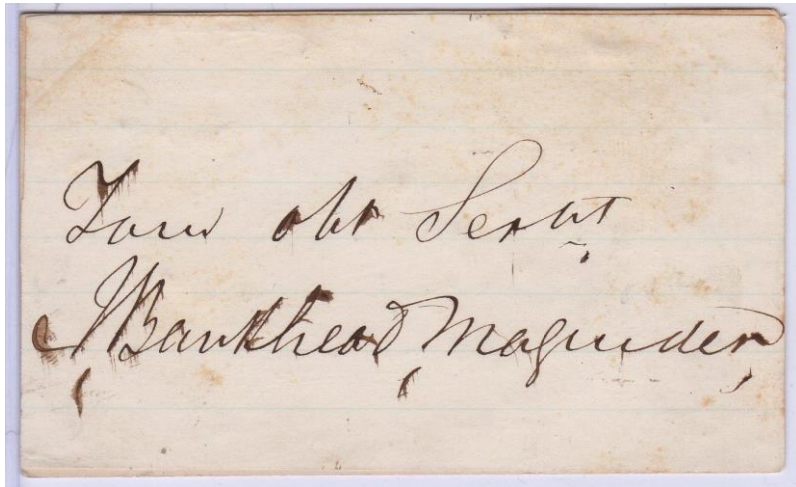 Your obt Servt
J Bankhead Magruder